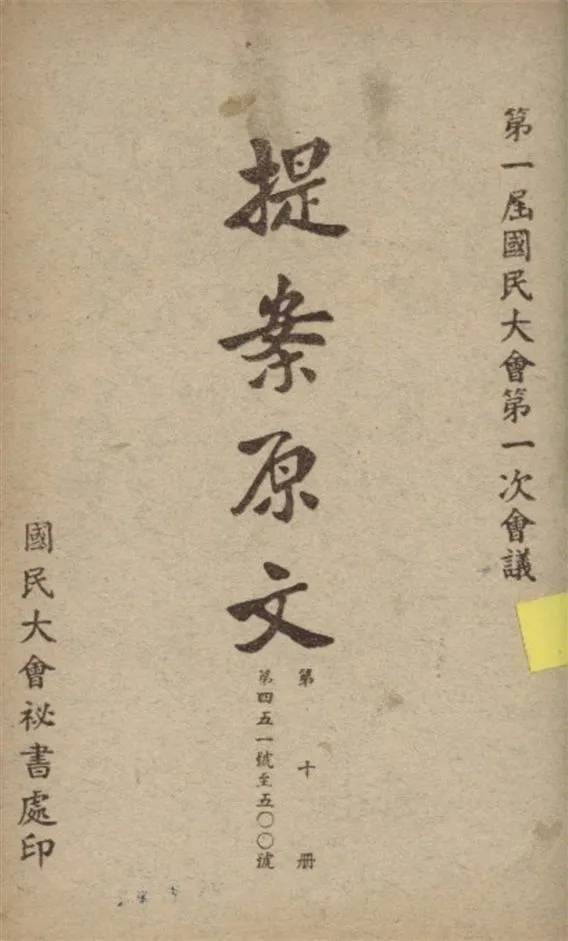 第一屆國民大會第一次會議
提案原文
第十冊
第四五一號至五〇〇號
國民大會祕書處印